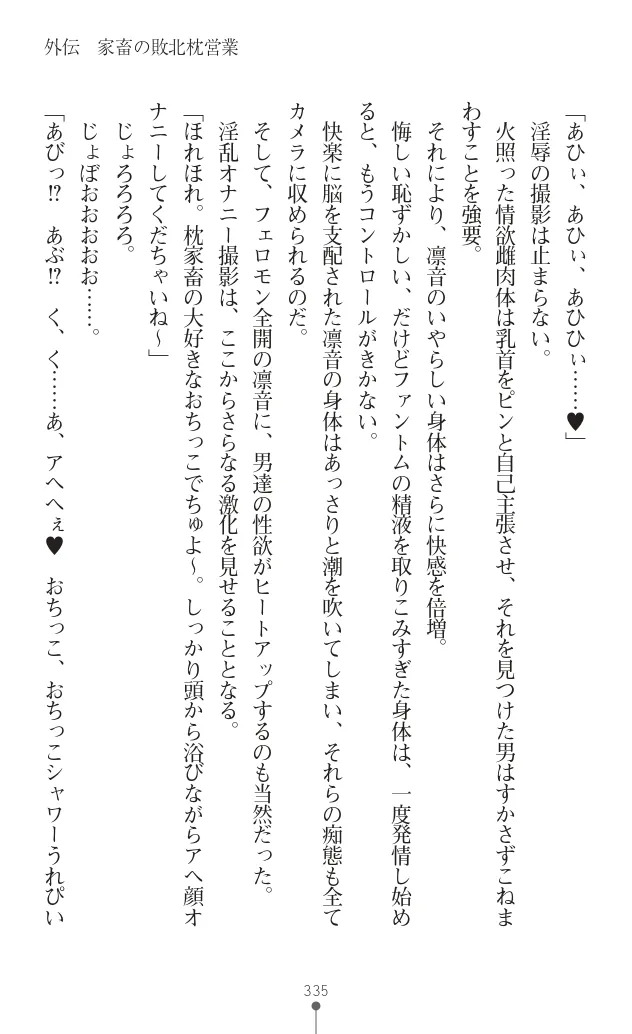 外伝　家畜の敗北枕営業
「あひぃ、あひぃ、あひひぃ……♥」
淫辱の撮影は止まらない。
火照った情欲雌肉体は乳首をピンと自己主張させ、それを見つけた男はすかさずこねま
わすことを強要。
それにより、凛音のいやらしい身体はさらに快感を倍増。
悔しい恥ずかしい、だけどファントムの精液を取りこみすぎた身体は、一度発情し始め
ると、もうコントロールがきかない。
快楽に脳を支配された凛音の身体はあっさりと潮を吹いてしまい、それらの痴態も全て
カメラに収められるのだ。
そして、フェロモン全開の凛音に、男達の性欲がヒートアップするのも当然だった。
淫乱オナニー撮影は、ここからさらなる激化を見せることとなる。
「ほれほれ。枕家畜の大好きなおちっこでちゅよ～。しっかり頭から浴びながらアヘ顔オ
ナニーしてくだちゃいね～」
じょろろろろ。
じょぼおおおおお……。
「あびっ!?　あぶ!?　く、く……あ、アへへぇ♥　おちっこ、おちっこシャワーうれぴい
335